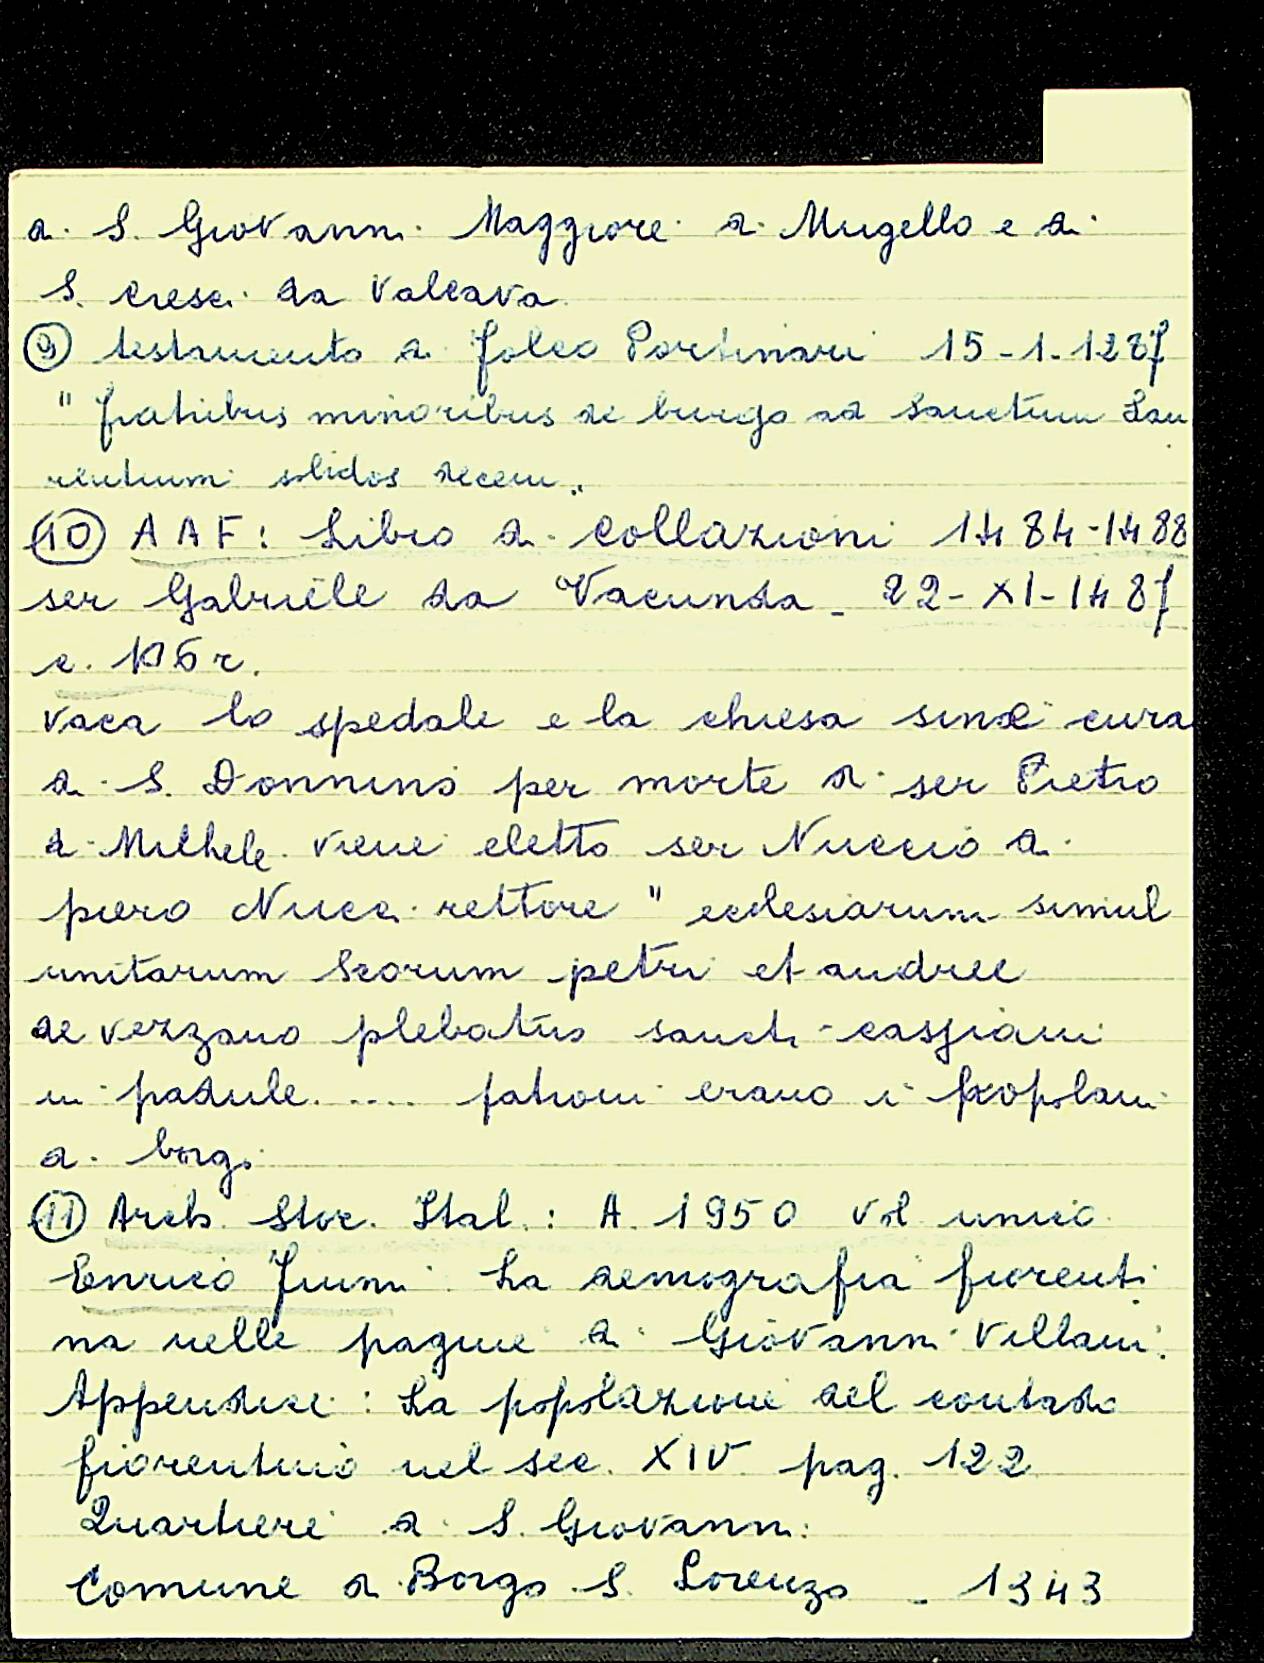 di S. Giovanni Maggiore di Mugello e di
S. Cresci da Valcava
⑨ testamento di folco Portinari 15-1-1287
" fratribus minoribus de burgo ad Sanctum Lau
rentium solidos decem „
⑩ AAF: Libro di collazioni 1484-1488
ser Gabriele da Vacunda - 22-XI-1487
c. 106 r.
vaca lo spedale e la chiesa sine cura
di S. Donnino per morte di ser Pietro
di Michele. viene eletto ser Nuccio di
piero Nucci rettore " ecclesiarum simul
unitarum Scorum petri et andree
de verzano plebatus sancti cassiani
in padule .... patroni erano i popolani
di borgo
⑪ Arch. Stor. Ital. : A. 1950 vol unico
Enrico Fiumi : La demografia fiorenti
na nelle pagine di Giovanni Villani.
Appendice : La popolazione del contado
fiorentino nel sec. XIV pag. 122
Quartiere di S. Giovanni:
Comune di Borgo S. Lorenzo - 1343